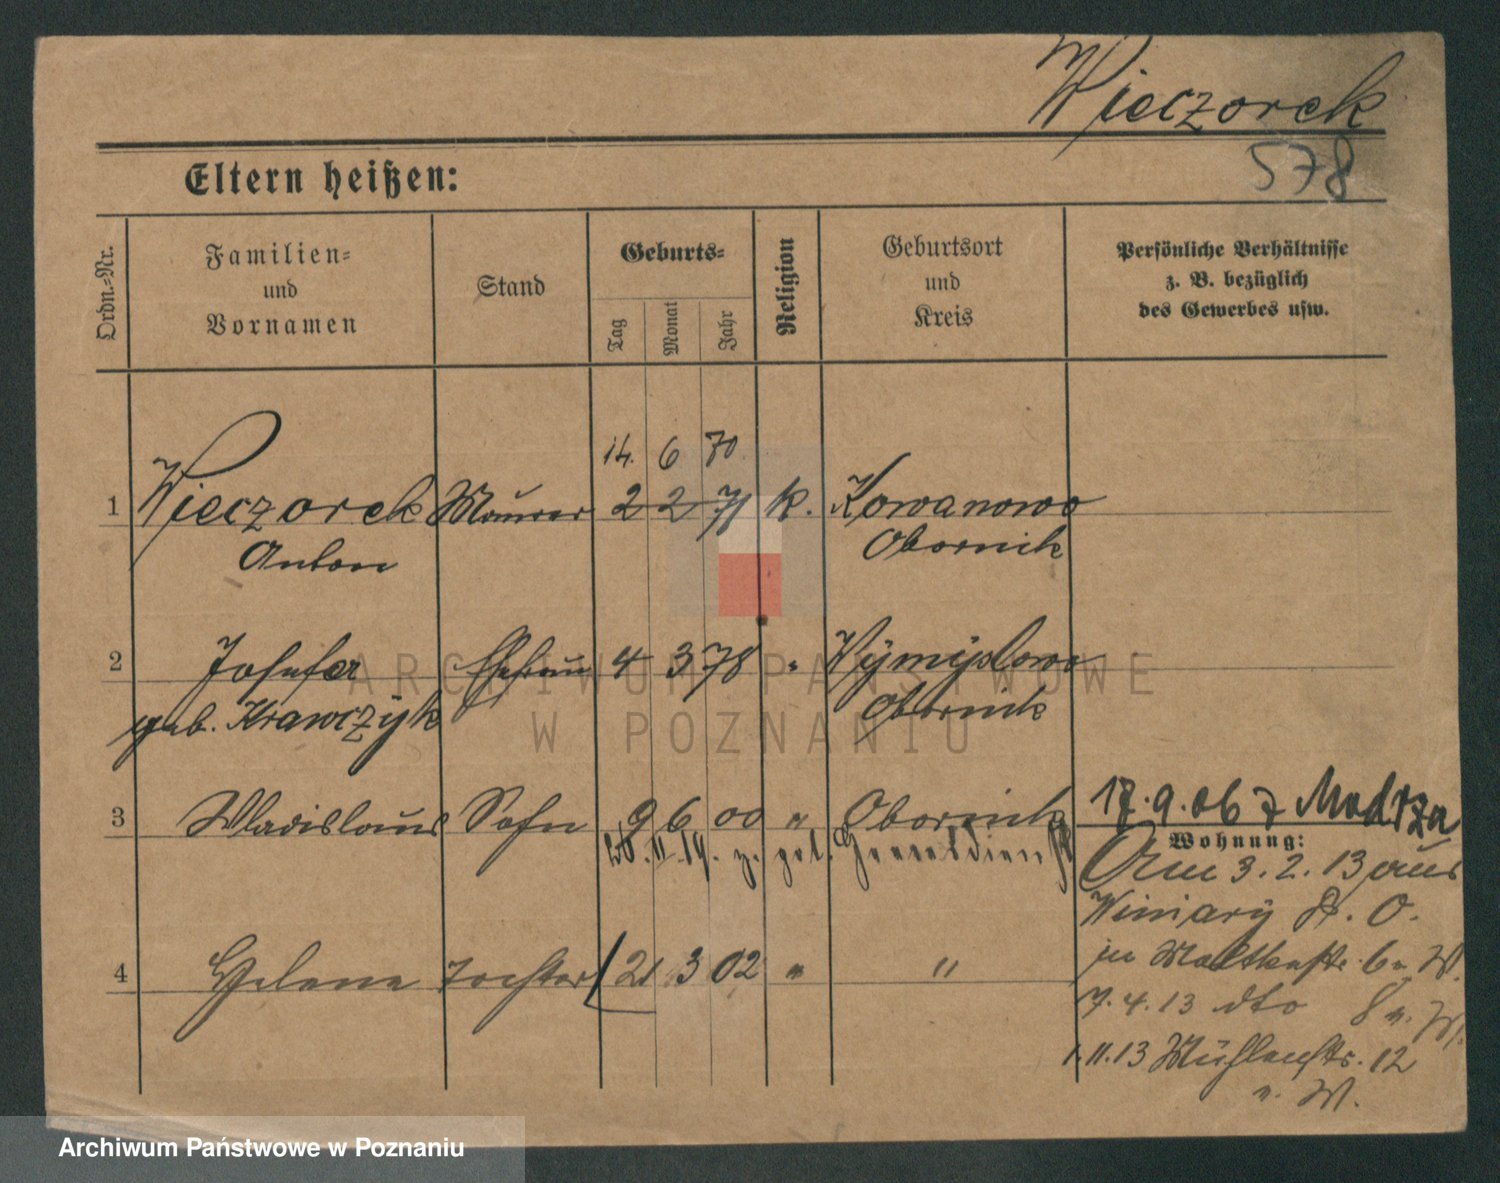 Wieczorek
578
Eltern heißen:
Ordn.-Nr.
Familien- und Vornamen
Stand
Geburts-
Tag
Monat
Jahr
Religion
Geburtsort und Kreis
Persönliche Verhältnisse
z. B. bezüglich
des Gewerbes usw.
14. 6 70
1 Wieczorek Maurer 2 2 71 k. Kowanowo
Anton Obornik
2 Josefa Ehefrau 4 3 78 " Wymyslowo
geb. Krawczyk Obornik
3 Wladislaus Sohn 9 6 00 " Obornik
28. 11. 19. z.
17. 9. 06 Modrza
Wohnung:
Am 3. 2. 13 aus
Winiary P. O.
in Moltkestr. 6 b. W.
4 Helene Tochter 21 3 02 " "
7. 4. 13 dto 8 b. W.
1. 11. 13 Mühlenstr. 12
b. W.
ARCHIWUM PAŃSTWOWE
W POZNANIU
Archiwum Państwowe w Poznaniu